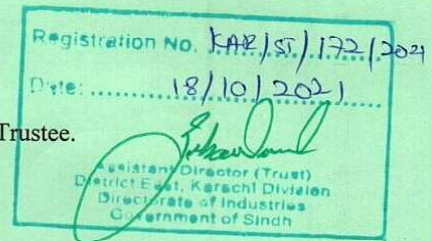 Registration No. KAR/ST/172/2021
Date: ........ 18/10/2021
Trustee.
Assistant Director (Trust)
District East, Karachi Division
Directorate of Industries
Government of Sindh